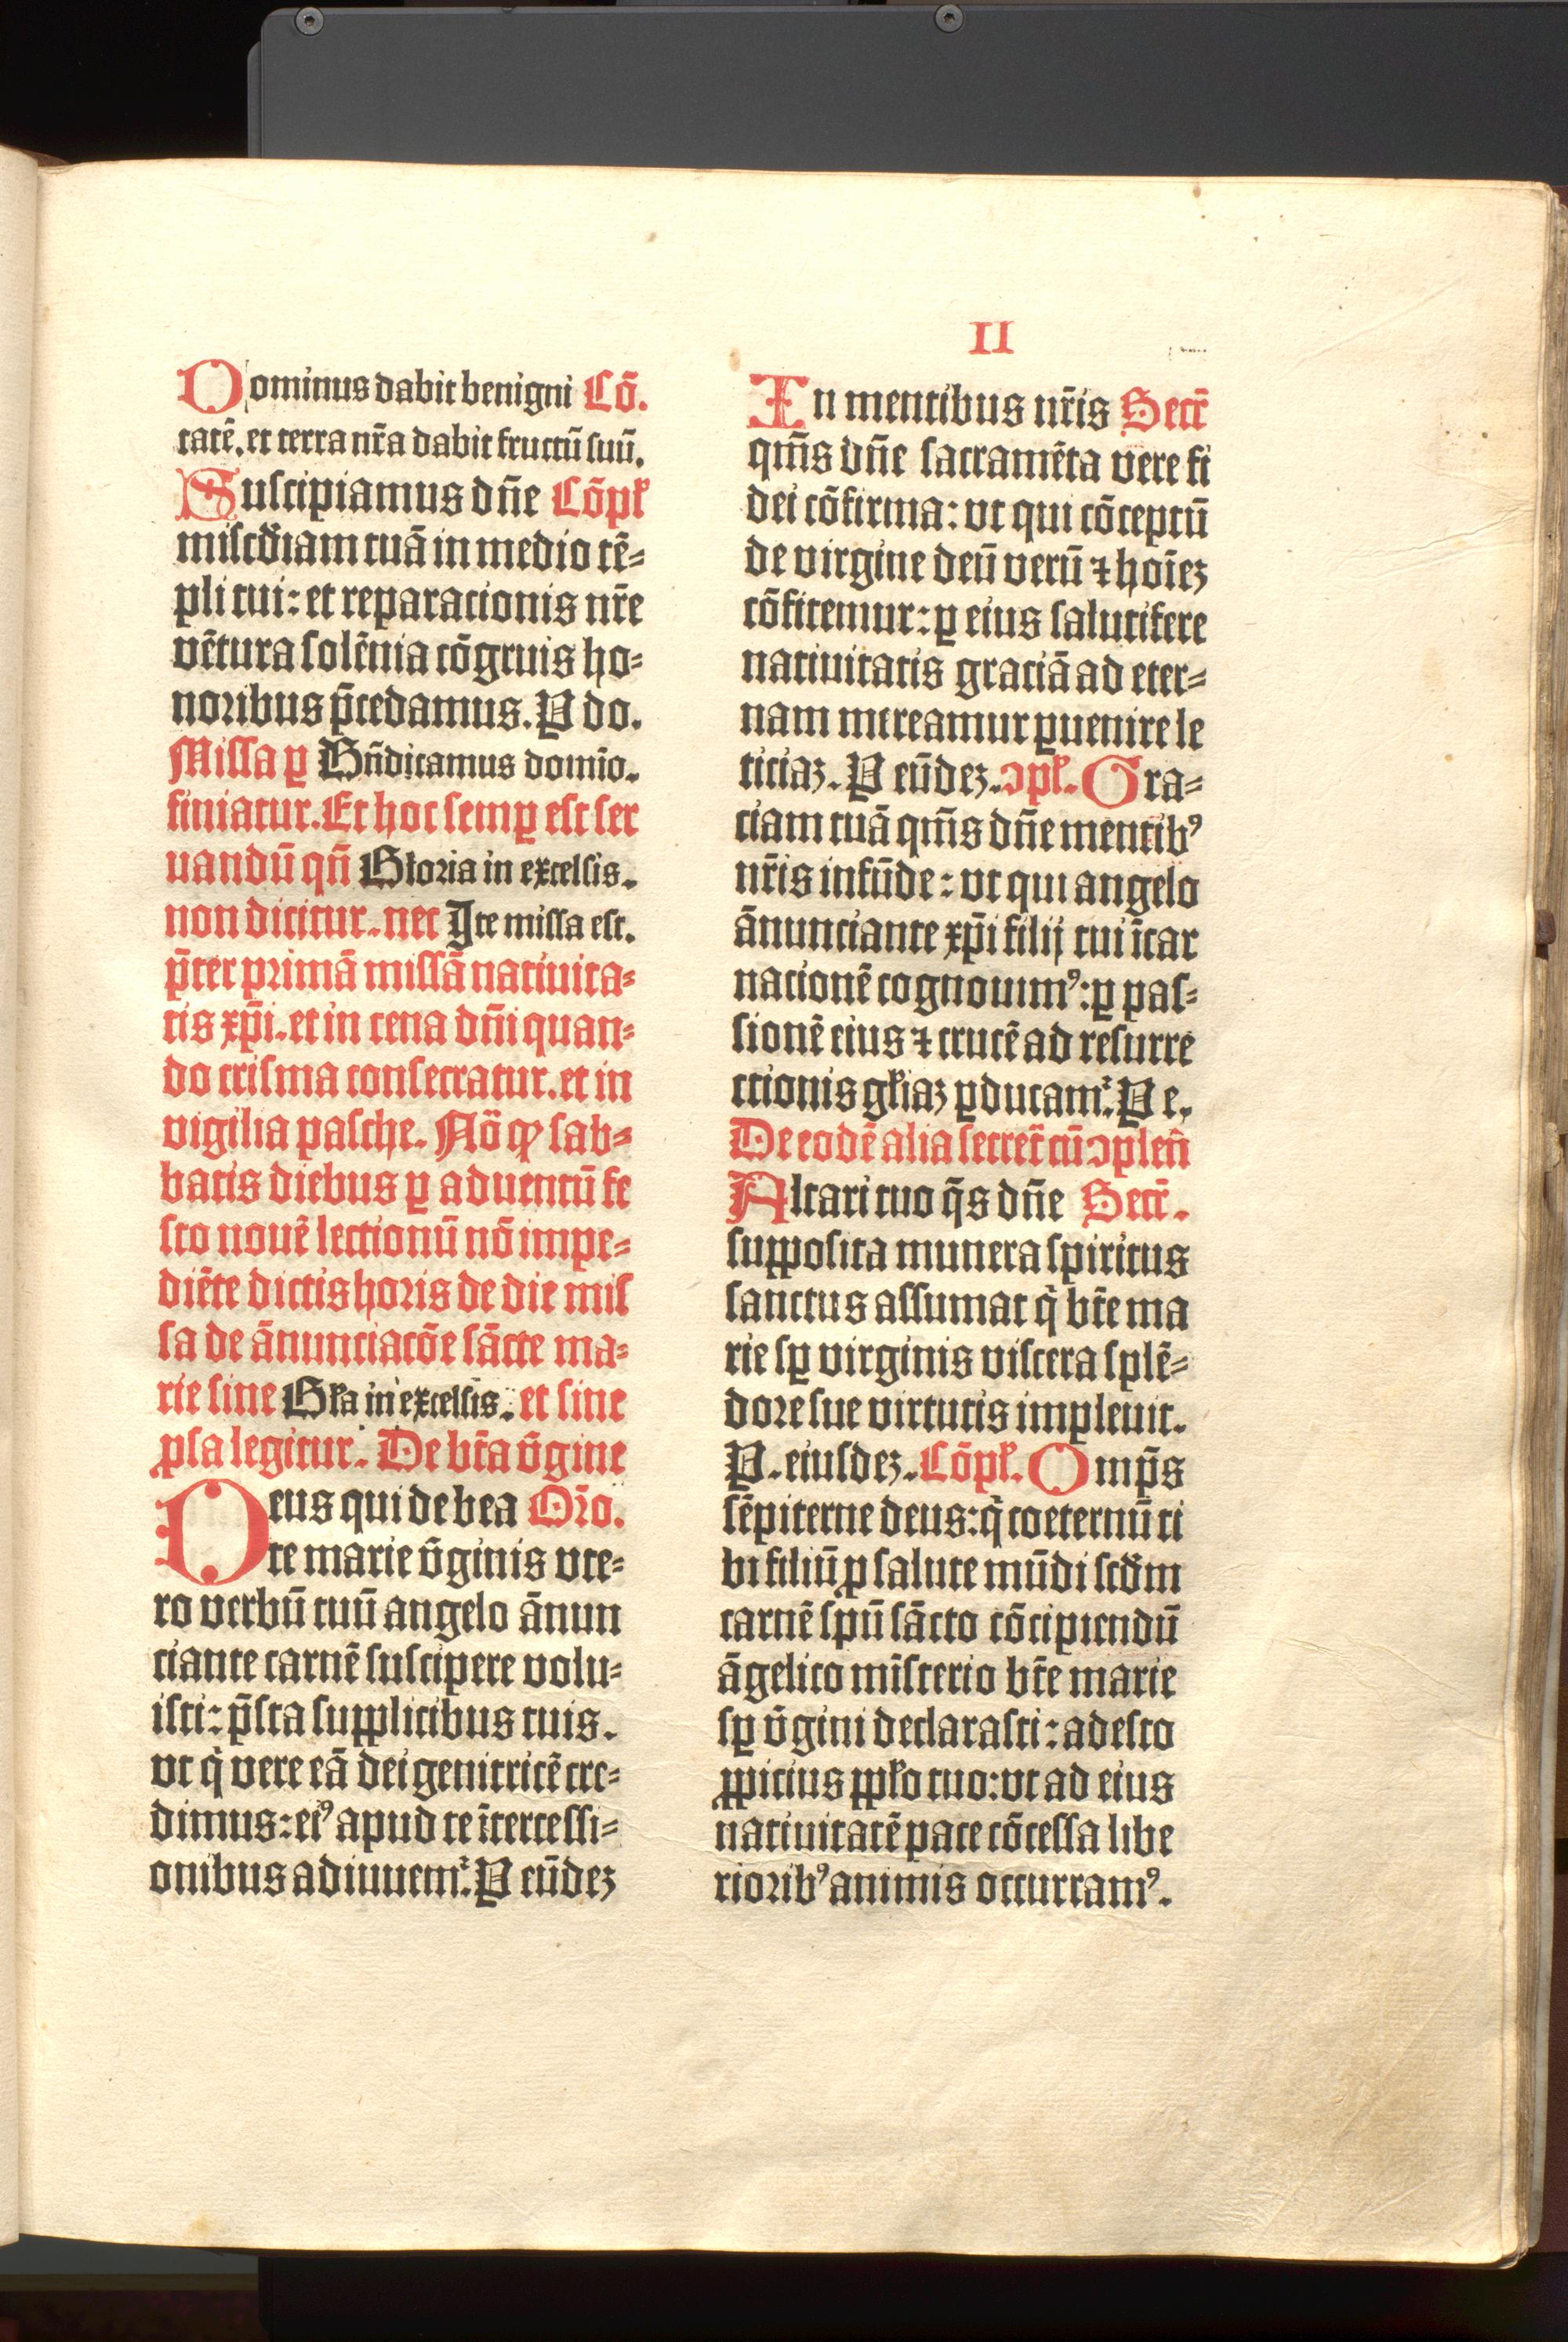 II
Dominus dabit benigni Cō.
tatē. et terra nr̄a dabit fructū suū.
Suscipiamus dn̄e Cōpƚ
miscd̄iam tuā in medio tē⸗
pli tui: et reparacionis nr̄e
vētura solēnia cōgruis ho⸗
noribus p̄cedamus. P do.
Missa ꝑ Bn̄dicamus domīo.
finiatur. Et hoc semꝑ est ser
uandū qn̄ Gloria in excelsis.
non dicitur. nec Ite missa est.
p̄ter primā missā natiuita⸗
tis xp̄i. et in cena dn̄i quan⸗
do crisma consecratur. et in
vigilia pasche. Nō ꝙ sab⸗
batis diebus ꝑ aduentū fe
sto nouē lectionū nō impe⸗
diēte dictis horis de die mis
sa de ānunciacōe sācte ma⸗
rie sine Gƚa in excelsis. et sine
ꝓsa legitur. De btā v̄gine
Deus qui de bea Oro̅.
te marie v̄ginis vte⸗
ro verbū tuū angelo ānun
ciante carnē suscipere volu⸗
isti: p̄sta supplicibus tuis.
vt q̇ vere eā dei genitricē cre⸗
dimus: eiꝰ apud te ītercessi⸗
onibus adiuuem᷑. P eūdeꝫ
In mentibus nr̄is Secr̄
qm̄s dn̄e sacramēta vere fi
dei cōfirma: vt qui cōceptū
de virgine deū verū ⁊ hoīeꝫ
cōfitemur: ꝑ eius salutifere
natiuitatis graciā ad eter⸗
nam mereamur ꝑuenire le
ticiaꝫ. P eūdeꝫ. ↄpƚ. Gra⸗
ciam tuā qm̄s dn̄e mentibꝰ
nr̄is infūde: vt qui angelo
ānunciante xp̄i filij tui īcar
nacionē cognouimꝰ: ꝑ pas⸗
sionē eius ⁊ crucē ad resurre
ctionis gƚiaꝫ ꝑducam᷑. P e.
De eodē alia secret̄ cū ↄplen̄
Altari tuo q̄s dn̄e Secr̄.
supposita munera spiritus
sanctus assumat q̇ bt̄e ma
rie sꝑ virginis viscera splē⸗
dore sue virtutis impleuit.
P. eiusdeꝫ. Cōpƚ. Omp̄s
sēpiterne deus: q̇ coeternū ti
bi filiū ꝓ salute mūdi scd̄m
carnē spū sācto cōcipiendū
āgelico mīsterio bt̄e marie
sꝑ v̄gini declarasti: adesto
ꝓpicius ppƚo tuo: vt ad eius
natiuitatē pace cōcessa libe
rioribꝰ animis occurramꝰ.